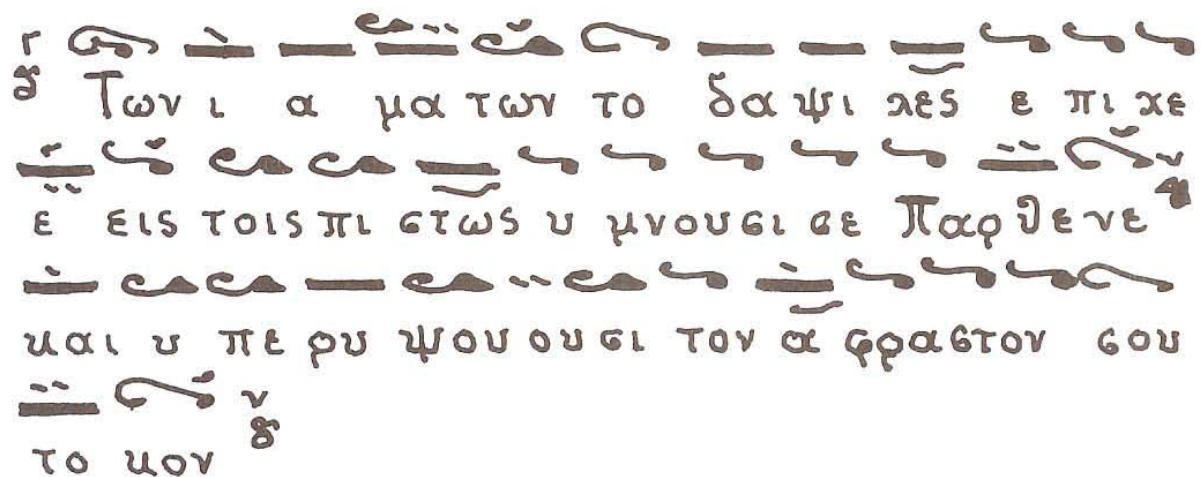 Των ι α μα των το δα ψι λες ε πι χε
ε εις τοις πι στως υ μνουσι σε Παρθενε
και υ πε ρυ ψου ουσι τον α φραστον σου
το κον